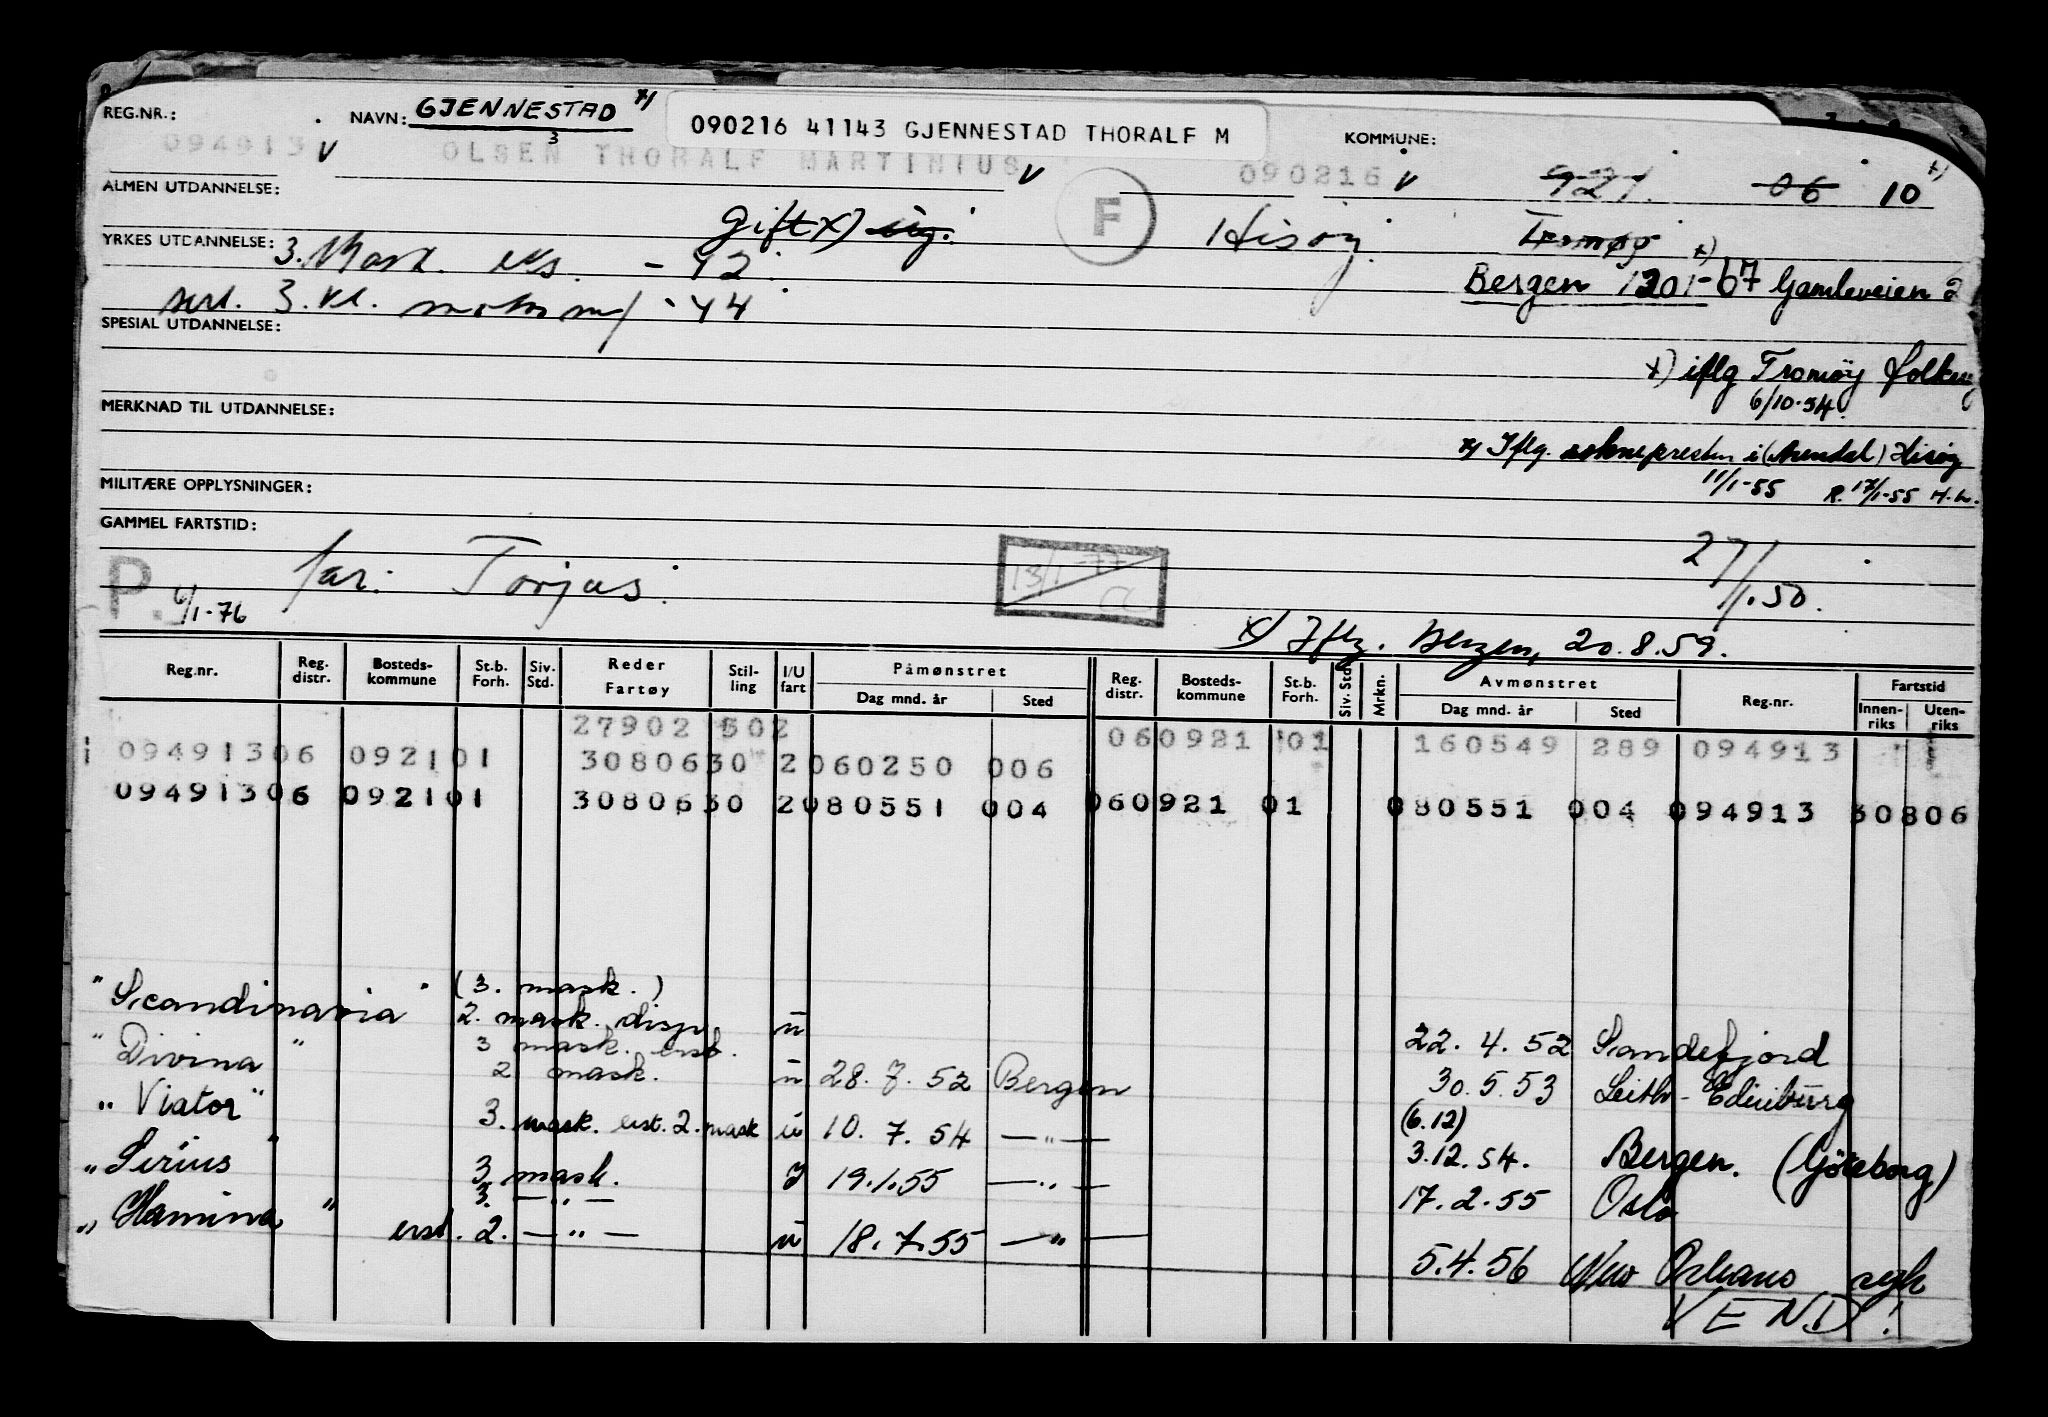 REG.NR.: NAVN: GJENNESTAD 090216 41143 GJENNESTAD THORALF M KOMMUNE:
094913 V OLSEN THORALF MARTINIUS V 090216 V 921 06 10
ALMEN UTDANNELSE:
gift x) ug. F Hisøy. Tromøy x)
YRKES UTDANNELSE: 3. Mask. eks. - 42.
Bergen 1201-67 Gamleveien 2
sert. 3. kl. motorm/ - 44
SPESIAL UTDANNELSE:
x) iflg Tromøy folkereg
6/10-54.
MERKNAD TIL UTDANNELSE:
x) Iflg. soknepresten i (Arendal) Hisøy
11/1-55 R. 17/1-55 H.L.
MILITÆRE OPPLYSNINGER:
GAMMEL FARTSTID:
P. 6/1-76 far: Torjus. 13/1-77 CC 27/1.50.
x/ Iflg. Bergen, 20.8.59.
Reg.nr. Reg. distr. Bosteds-kommune St.b. Forh. Siv. Std. Reder Fartøy Stil-ling I/U fart Påmønstret Dag mnd. år Sted Reg. distr. Bosteds-kommune St.b. Forh. Siv. Std. Mrkn. Avmønstret Dag mnd. år Sted Reg.nr. Fartstid Innen-riks Uten-riks
27902 502 060921 01 160549 289 094913
09491306 092101 3080630 2060250 006
09491306 092101 3080630 2080551 004 060921 01 080551 004 094913 30806
"Scandinavia" (3. mask.)
2. mask. disp. u 22. 4. 52 Sandefjord
"Divina" 3 mask. erst.
2 mask. u 28. 7. 52 Bergen 30.5.53 Leith - Edinburg
"Viator" 3. mask. erst. 2. mask u 10. 7. 54 — " — (6.12)
3.12.54. Bergen. (Göteborg)
"Sirius" 3 mask. I 19.1.55 — " — 17.2.55 Oslo
"Hamina" 3. — " —
erst. 2. — " — u 18.7.55 — " — 5.4.56 New Orleans syk
VEND!